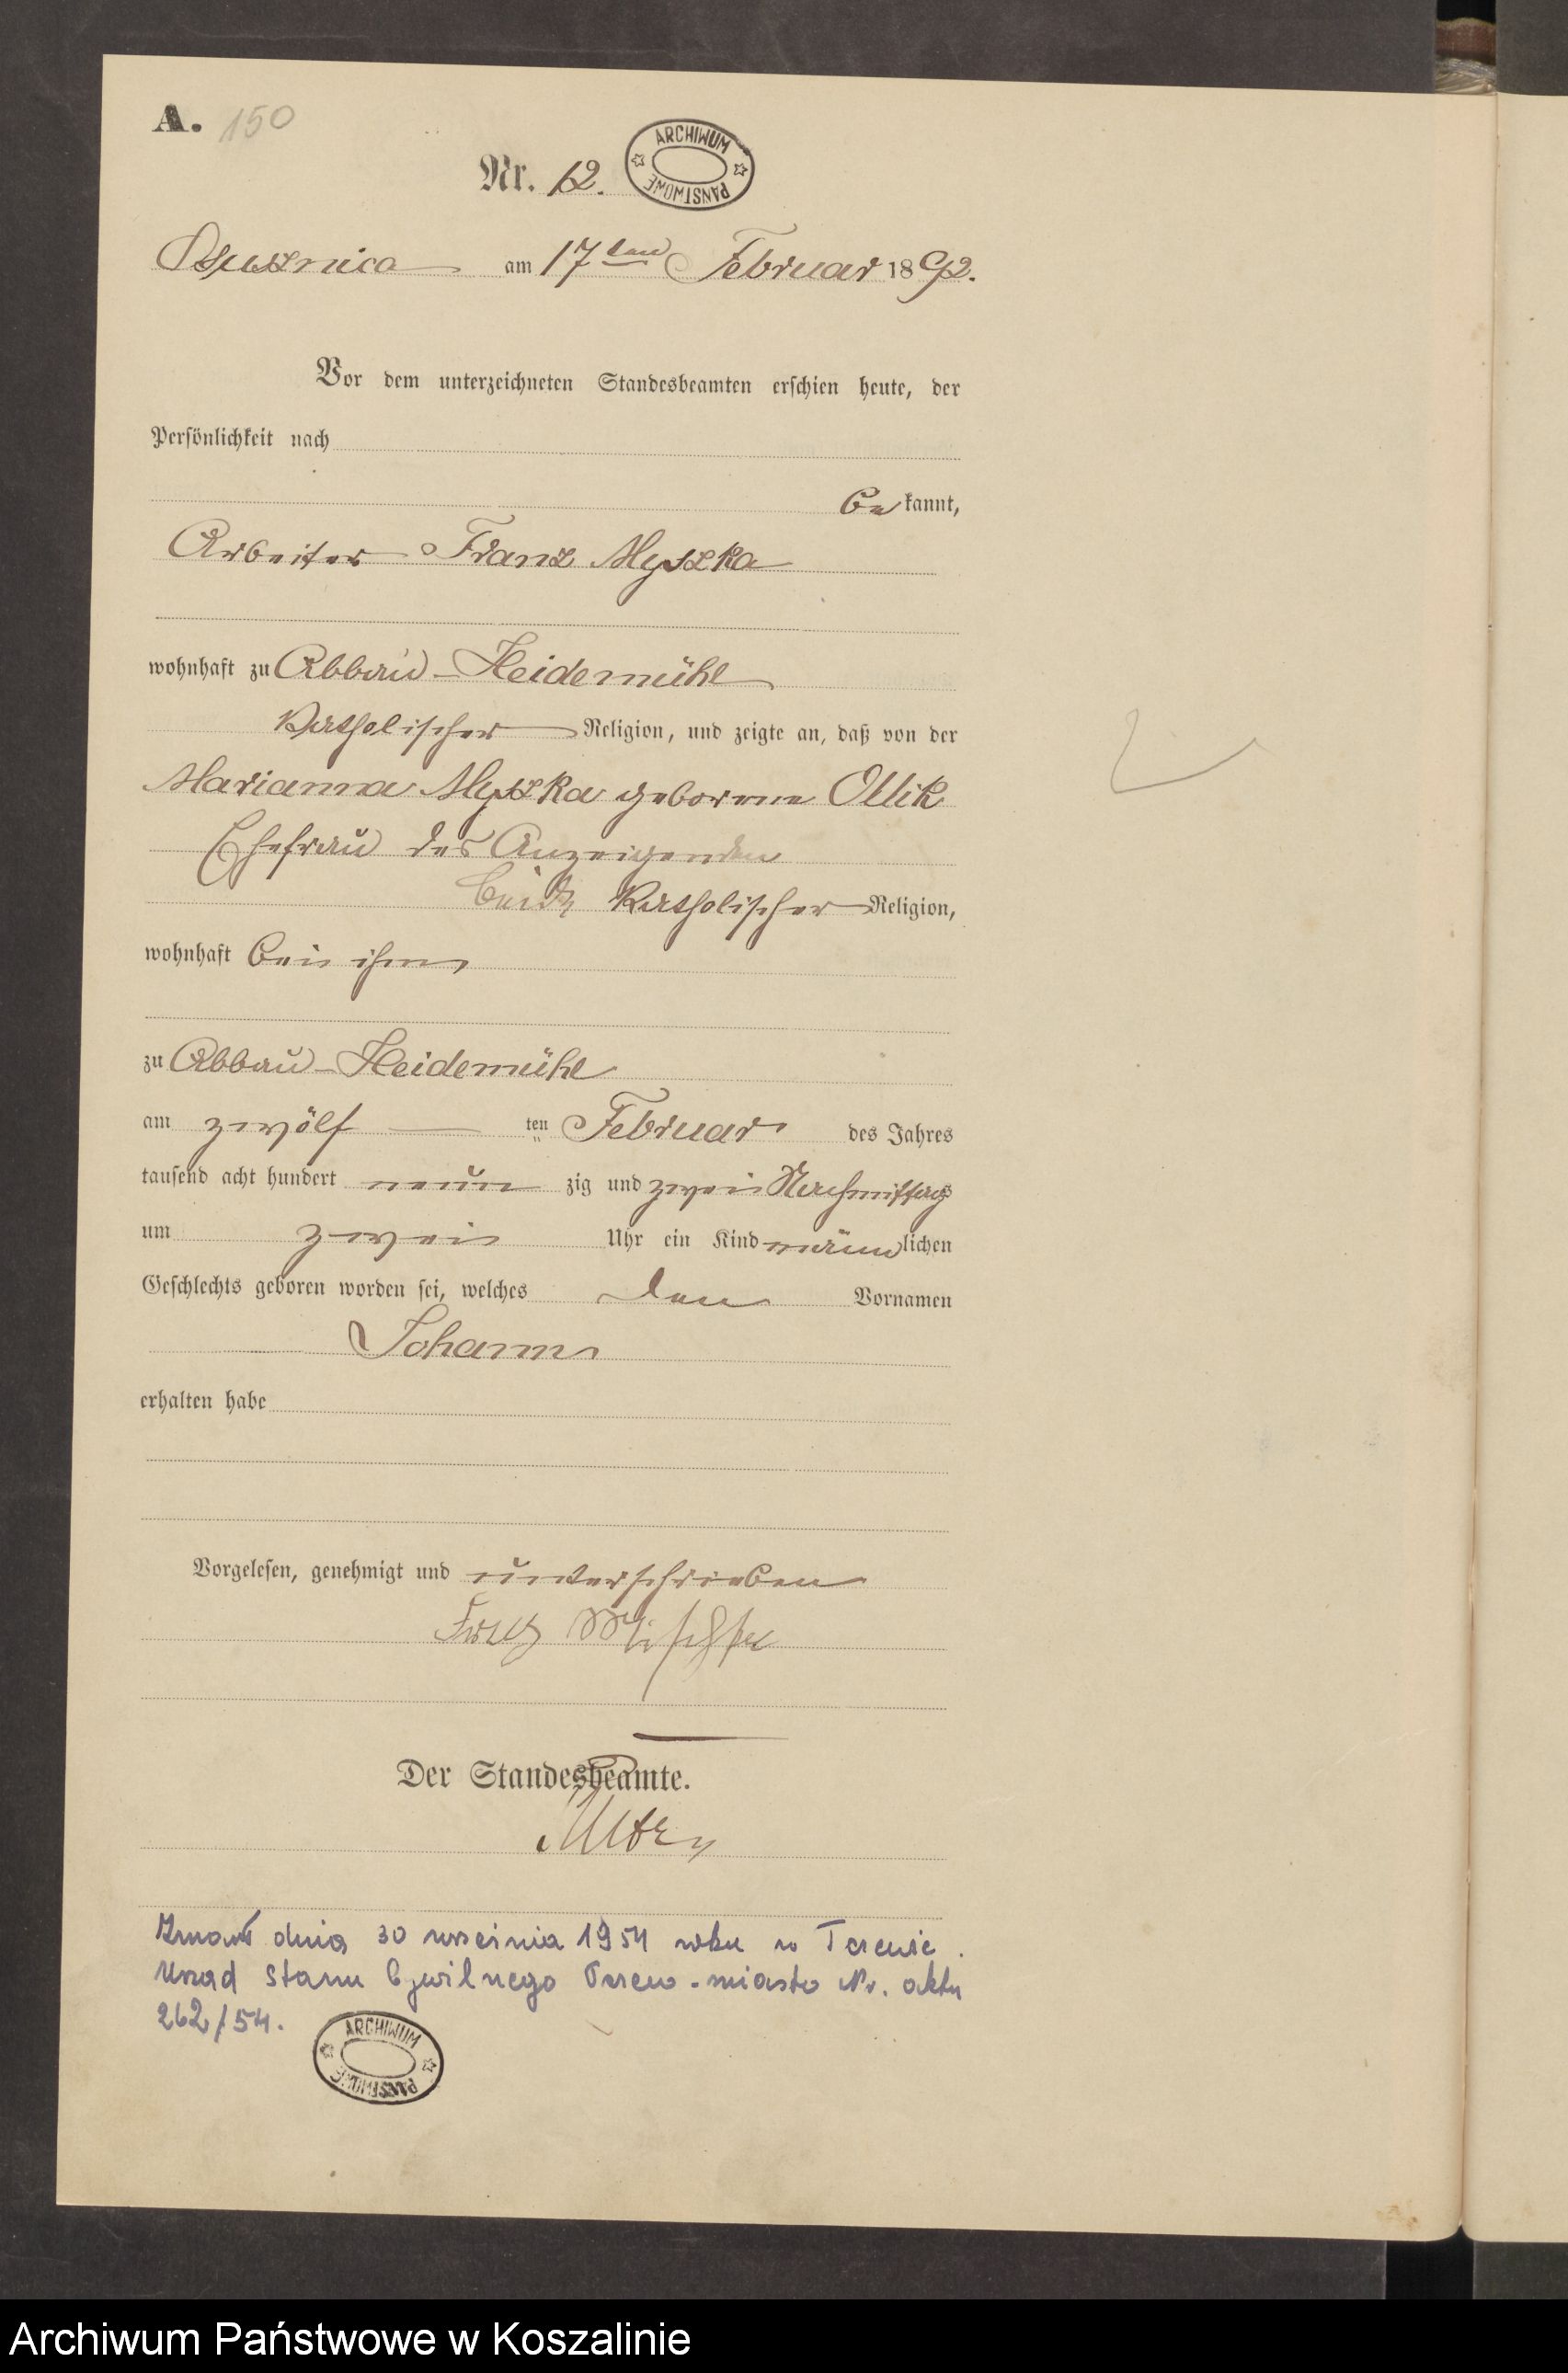 A. 150
Nr. 12.
ARCHIWUM PAŃSTWOWE
Ossusznica am 17ten Februar 1892.
Vor dem unterzeichneten Standesbeamten erschien heute, der
Persönlichkeit nach
be kannt,
Arbeiter Franz Myszka
wohnhaft zu Abbau-Heidemühl
katholischer Religion, und zeigte an, daß von der
Marianna Myszka geborene Ollik
Ehefrau des Anzeigenden
beide katholischer Religion,
wohnhaft bei ihm
zu Abbau-Heidemühl
am zwölf ten Februar des Jahres
tausend acht hundert neun zig und zwei Nachmittag
um zwei Uhr ein Kind männlichen
Geschlechts geboren worden sei, welches den Vornamen
Johann
erhalten habe
Vorgelesen, genehmigt und unterschrieben
Franz
Der Standesbeamte.
Zmarł dnia 30 września 1954 roku w Tczewie.
Urząd Stanu Cywilnego Tczew-miasto Nr. aktu
262/54.
ARCHIWUM PAŃSTWOWE
Archiwum Państwowe w Koszalinie